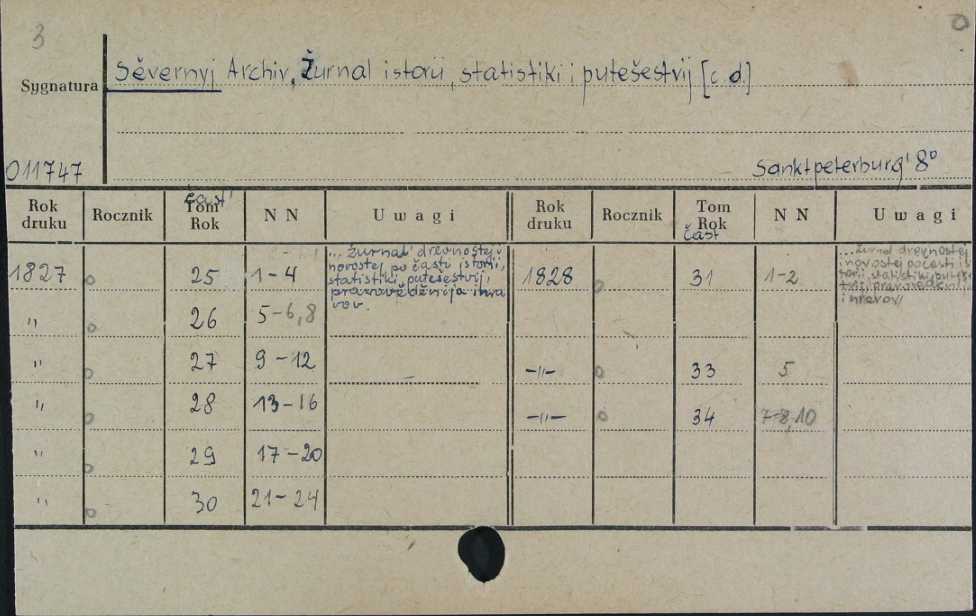 3
Sěvernyj Archiv, Žurnal istorii, statistiki i putešestvij [c.d.]
Sygnatura
011747
Sanktpeterburg' 8°
Rok druku Rocznik čast' Tom Rok N N Uwagi Rok druku Rocznik Tom Rok čast N N Uwagi
1827 o 25 1-4 1828 o 31 1-2
... žurnal' drevnostej i
novostej po časti istorii,
statistiki, putešestvij,
pravovědženija i nra
vov.
... žurnal drevnostej
novostej po časti i
storii, statistiki, putěše
i nravov
" o 26 5-6,8
" o 27 9-12 -"- o 33 5
" o 28 13-16 -"- o 34 7-8,10
" o 29 17-20
" o 30 21-24